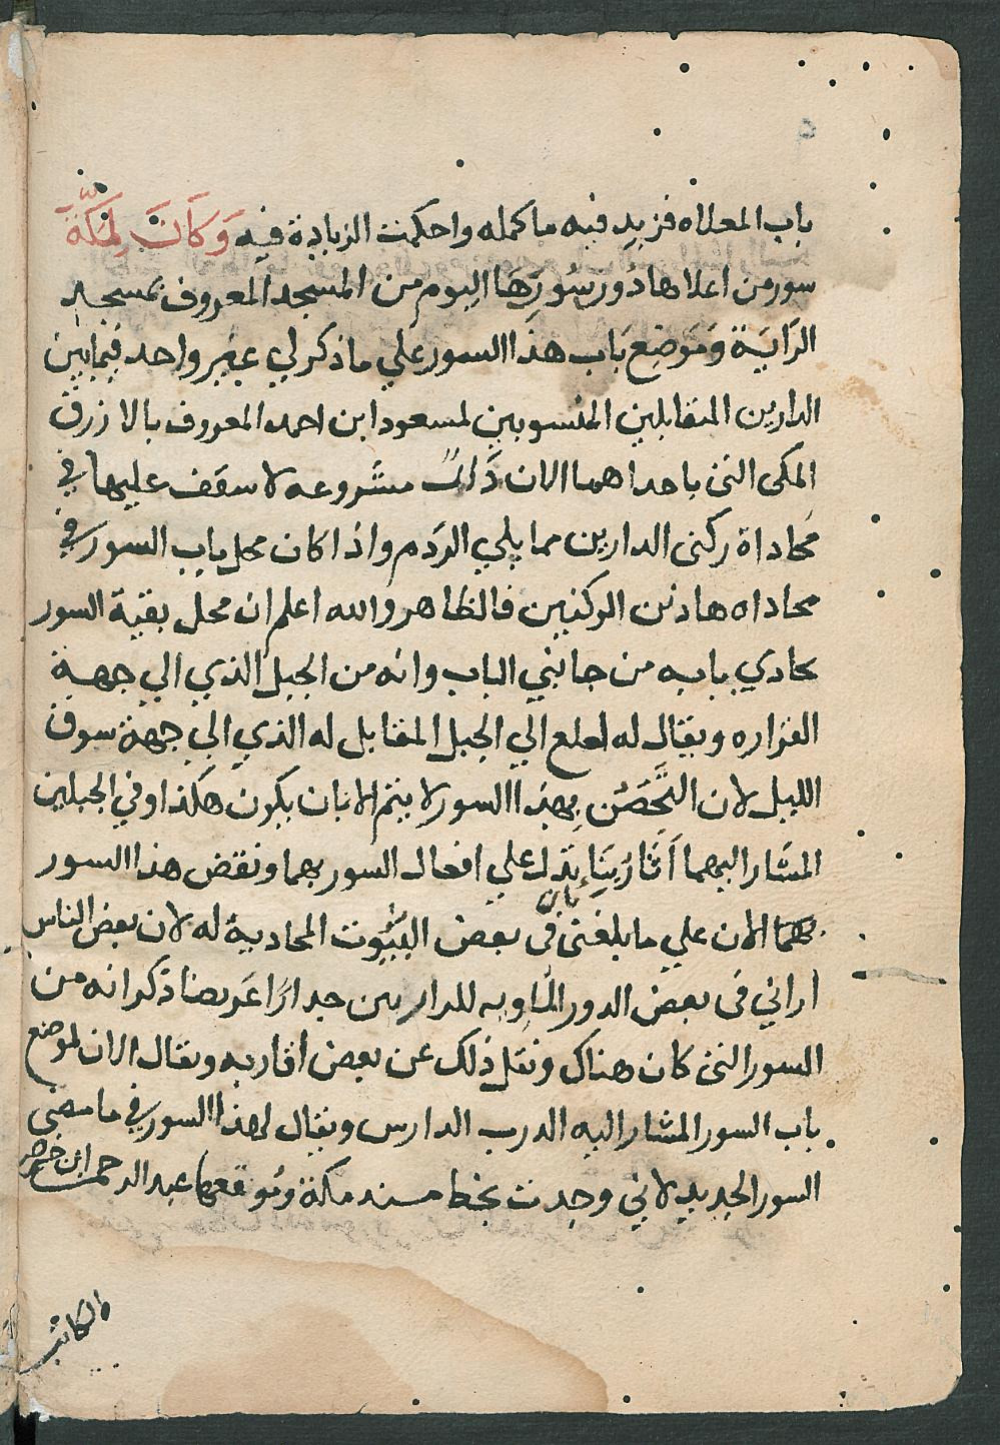 باب المعلاه فزيد فيه ما كمله واحكمت الزيادة فيه وَكَانَ لِمَكَّةَ
سور من اعلاها دُور سُورِهَا اليوم من المسجد المعروف بمسجد
الرَّايَة وَمَوضِع بَاب هذا السور علي ما ذكر لي غير واحد فيما بين
الدارين المتقابلين المنسوبين لمسعود ابن احمد المعروف بالازرق
المكى التى باحداهما الان مشروعه لا سقف عليها في
محاداة ركنى الدارين مما يلي الردم واذا كان محل باب السور في
محاداه هادئن الركنين فالظاهر والله اعلم ان محل بقية السور
يحادي بابه من جانبي الباب وانه من الجبل الذي الي جهة
القراره ويقال له لعلع الي الجبل المقابل له الذي الي جهة سوق
الليل لان التَّحَصُّن بِهذا السور لا يتم الا بان يكون هكذا وفي الجبلين
المشار اليهما اَثَار بِنَاءٍ يَدُل علي اتصال السور بهما ونقض هذا السور
الان علي ما بلغنى فى بعض البُيُوت المحادية له لان بعض الناس
ارانى فى بعض الدور للدارين جدارًا عَريضا ذكر انه من
السور التى كان هناك ونقل ذلك عن بعض اقاربه ويقال الان لموضع
باب السور المشار اليه الدرب الدارس ويقال لهذا السور في ما مضى
السور الجديد لاني وجدت بخط مسند مكة وموقعها عبد الرحمن ابن
الكاتب